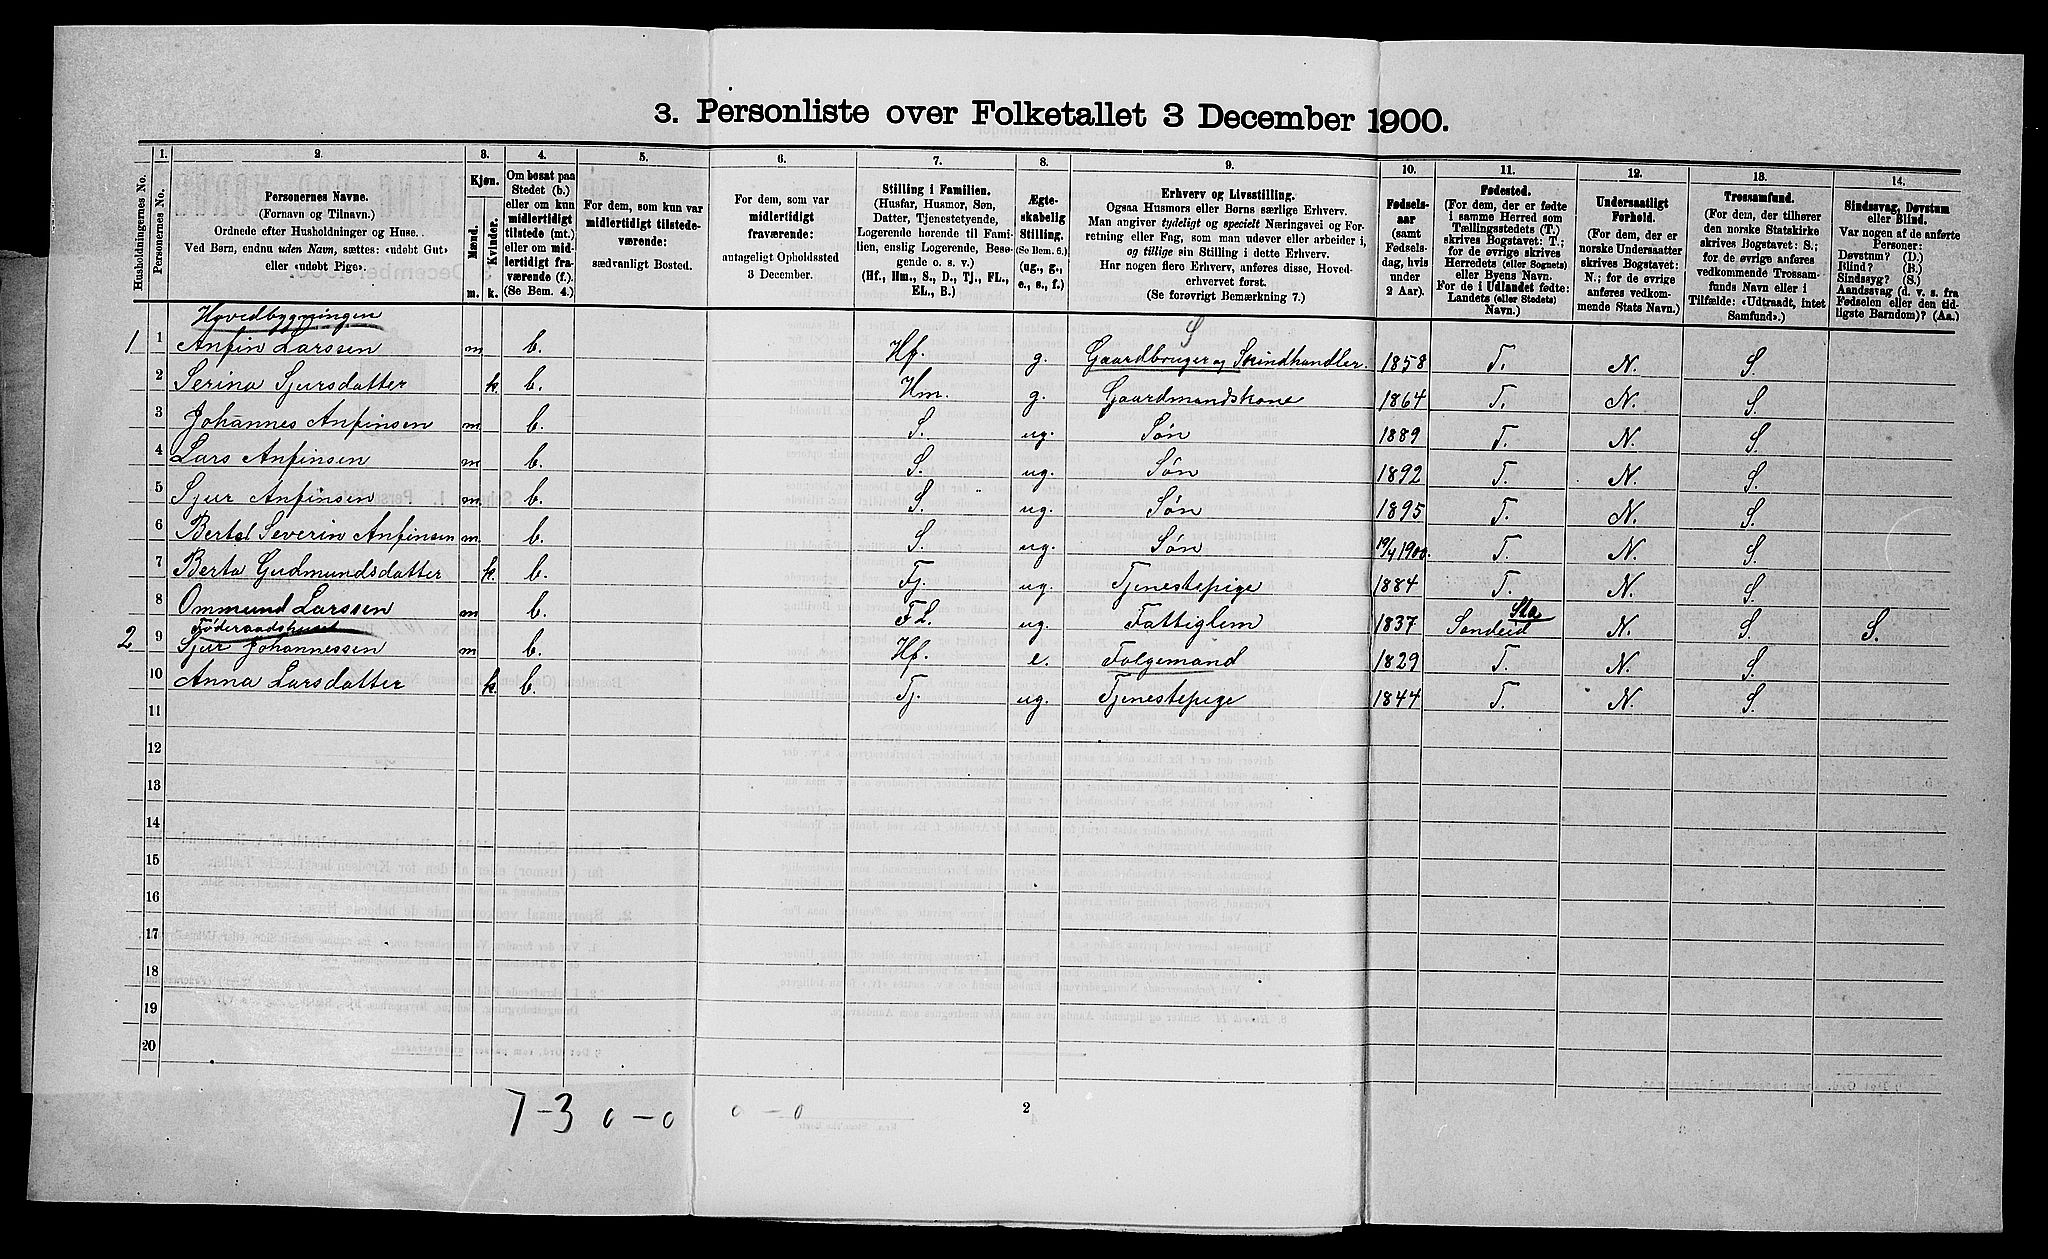 3. Personliste over Folketallet 3 December 1900.
Husholdningernes No.
1. Personernes No.
2. Personernes Navne.
(Fornavn og Tilnavn.)
Ordnede efter Husholdninger og Huse.
Ved Børn, endnu uden Navn, sættes: «udøbt Gut»
eller «udøbt Pige».
3. Kjøn.
Mænd. Kvinder.
m. k.
4. Om bosat paa
Stedet (b.)
eller om kun
midlertidigt
tilstede (mt.)
eller om mid-
lertidigt fra-
værende (f.).
(Se Bem. 4.)
5. For dem, som kun var
midlertidigt tilstede-
værende:
sædvanligt Bosted.
6. For dem, som var
midlertidigt
fraværende:
antageligt Opholdssted
3 December.
7. Stilling i Familien.
(Husfar, Husmor, Søn,
Datter, Tjenestetyende,
Logerende hørende til Fami-
lien, enslig Logerende, Besø-
gende o. s. v.)
(Hf., Hm., S., D., Tj., FL.,
EL., B.)
8. Ægte-
skabelig
Stilling.
(Se Bem. 6.)
(ug., g.,
e., s., f.)
9. Erhverv og Livsstilling.
Ogsaa Husmors eller Børns særlige Erhverv.
Man angiver tydeligt og specielt Næringsvei og For-
retning eller Fag, som man udøver eller arbeider i,
og tillige sin Stilling i dette Erhverv.
Har nogen flere Erhverv, anføres disse, Hoved-
erhvervet først.
(Se forøvrigt Bemærkning 7.)
10. Fødsels-
aar
(samt
Fødsels-
dag, hvis
under
2 Aar).
11. Fødested.
(For dem, der er fødte
i samme Herred som
Tællingsstedets (T.)
skrives Bogstavet: T.;
for de øvrige skrives
Herredets (eller Sognets)
eller Byens Navn.
For de i Udlandet fødte:
Landets (eller Stedets)
Navn.)
12. Undersaatligt
Forhold.
(For dem, der er
norske Undersaatter
skrives Bogstavet:
N.; for de øvrige
anføres vedkom-
mende Stats Navn.)
13. Trossamfund.
(For dem, der tilhører
den norske Statskirke
skrives Bogstavet: S.;
for de øvrige anføres
vedkommende Trossam-
funds Navn eller i
Tilfælde: «Udtraadt, intet
Samfund».)
14. Sindssvag, Døvstum
eller Blind.
Var nogen af de anførte
Personer:
Døvstum? (D.)
Blind? (B.)
Sindssyg? (S.)
Aandssvag (d. v. s. fra
Fødselen eller den tid-
ligste Barndom)? (Aa.)
Hovedbygningen
1 1 Anfin Larssen m b. Hf. g. Gaardbruger og Skindhandler. 1858 T. N. S.
2 Serina Sjursdatter k. b. Hm. g. Gaardmandskone 1864 T. N. S.
3 Johannes Anfinsen m b. S. ug. Søn 1889 T. N. S.
4 Lars Anfinsen m b. S. ug. Søn 1892 T. N. S.
5 Sjur Anfinsen m. b. S. ug. Søn 1895 T. N. S.
6 Bertel Severin Anfinsen m. b. S. ug. Søn 19/4 1900. T. N. S.
7 Berta Gudmundsdatter k. b. Tj. ug. Tjenestepige 1884 T. N. S.
8 Ommund Larssen m b. FL. ug. Fattiglem 1837 Sandeid Sta N. S. S.
Føderaadshuset
2 9 Sjur Johannessen m b. Hf. e. Folgemand 1829 T. N. S.
10 Anna Larsdatter k. b. Tj. ug. Tjenestepige 1844 T. N. S.
11
12
13
14
15
16
17
18
19
20
7-3 0-0 0-0
2